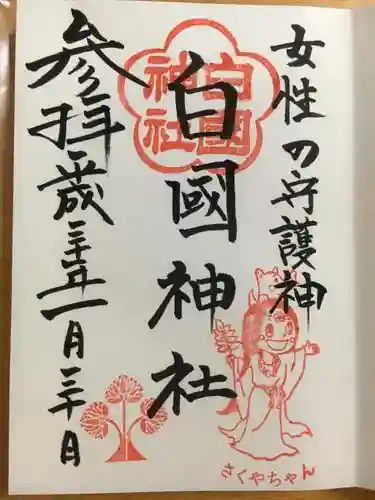 女性の守護神
白國神社
白國
神社
參拝
一月三十日
さくやちゃん